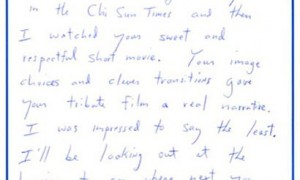 in the Chi Sun Times and then
I watched your sweet and
respectful short movie. Your image
choices and clever transitions gave
your tribute film a real narrative.
I was impressed to say the least.
I'll be looking out at the
to see where next you